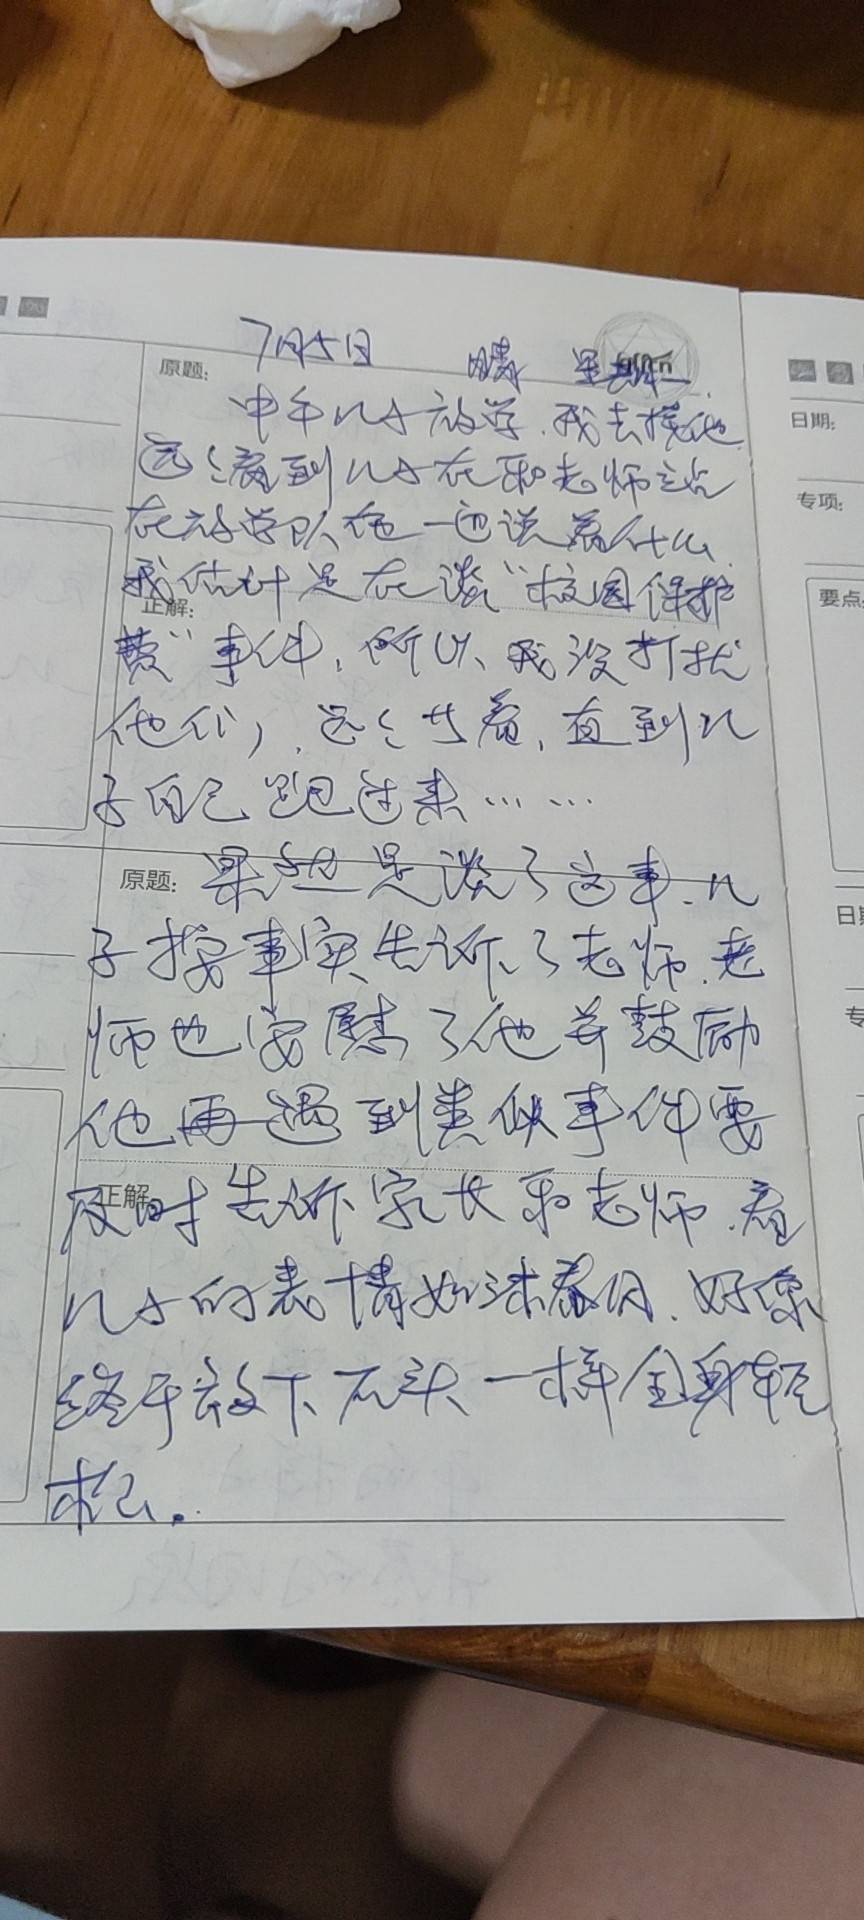 7月5日 晴 星期一
原题:
中午儿子放学，我去接他，
日期:
远远看到儿子在和老师站
专项:
在放学队伍一边说着什么，
我估计是在谈“校园保护
要点:
正解:
费”事件，所以，我没打扰
他们，远远站着，直到儿
子自己跑过来……
原题:
果然是谈了这事，儿
子按事实告诉了老师，老
师也安慰了他并鼓励
他再遇到类似事件要
正解
及时告诉家长和老师，看
儿子的表情如沐春风，好像
终于放下石头一样全身轻
松。